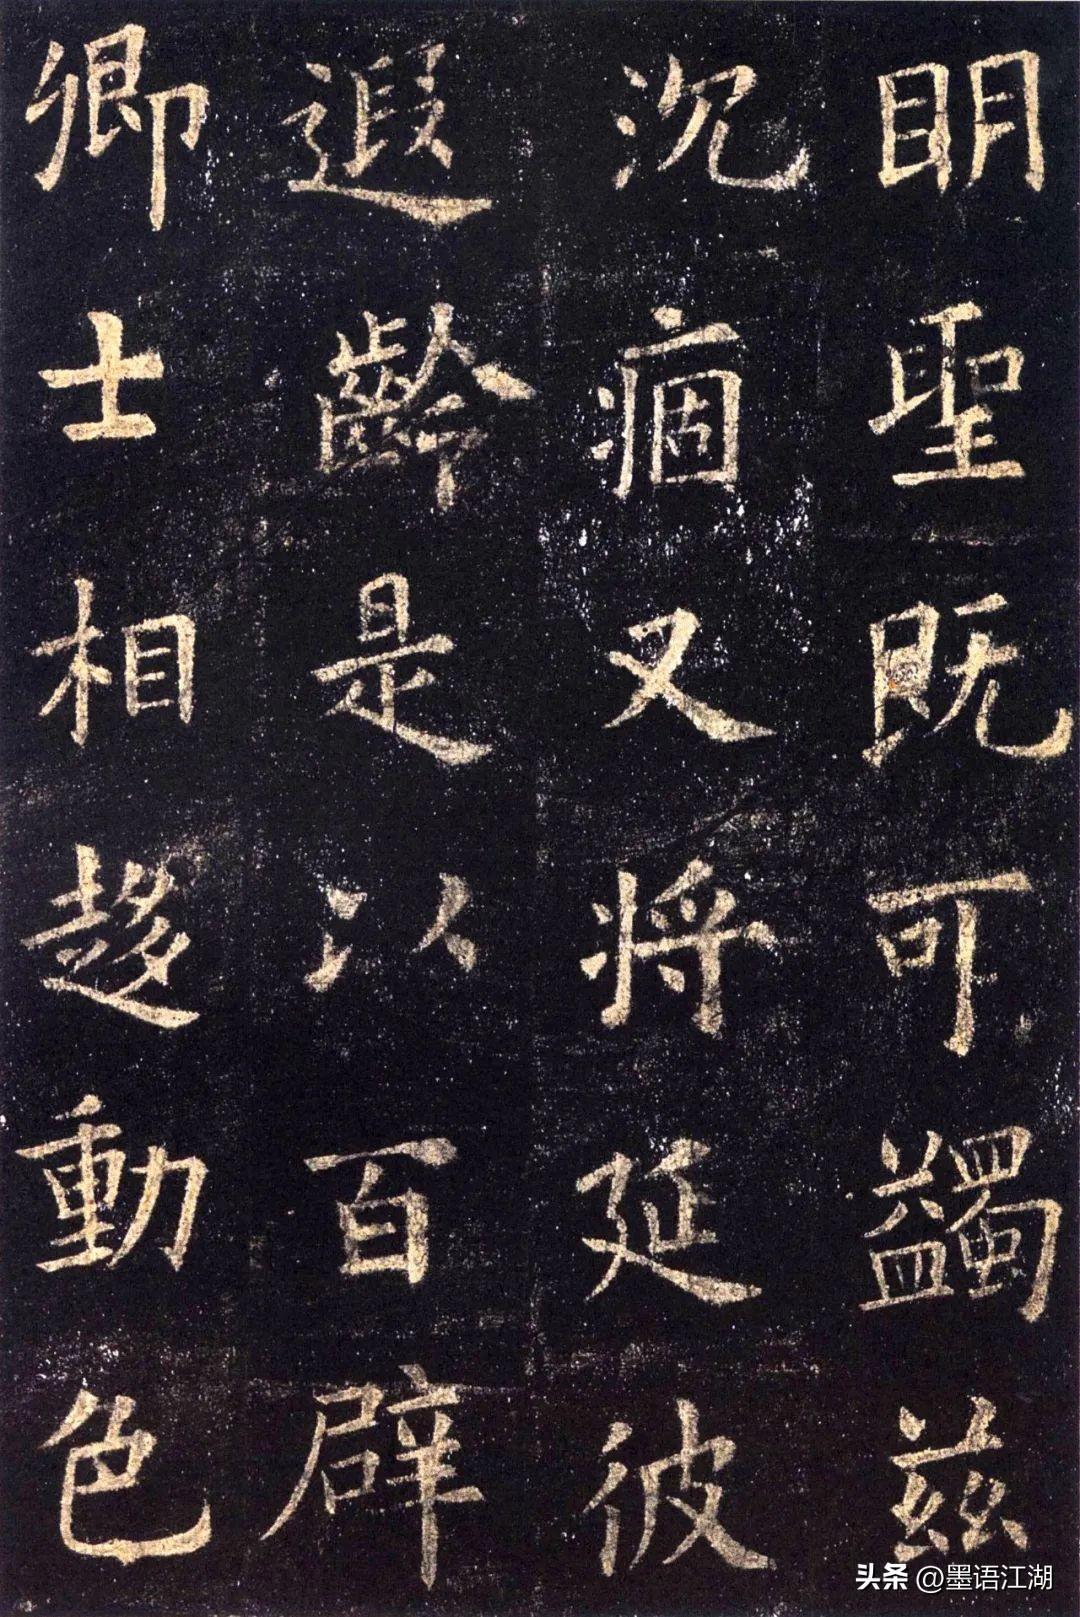 眀聖既可蠲茲
沉痼又将延彼
遐齡是以百辟
卿士相趍動色
头条 @墨语江湖